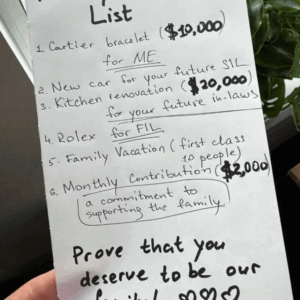 List
1. Cartier bracelet ($10,000)
for ME
2. New car for your future SIL
3. Kitchen renovation ($20,000)
for your future in-laws
4. Rolex for FIL
5. Family Vacation (first class
10 people)
6. Monthly Contribution ($2,000)
a commitment to
supporting the family
Prove that you
deserve to be our